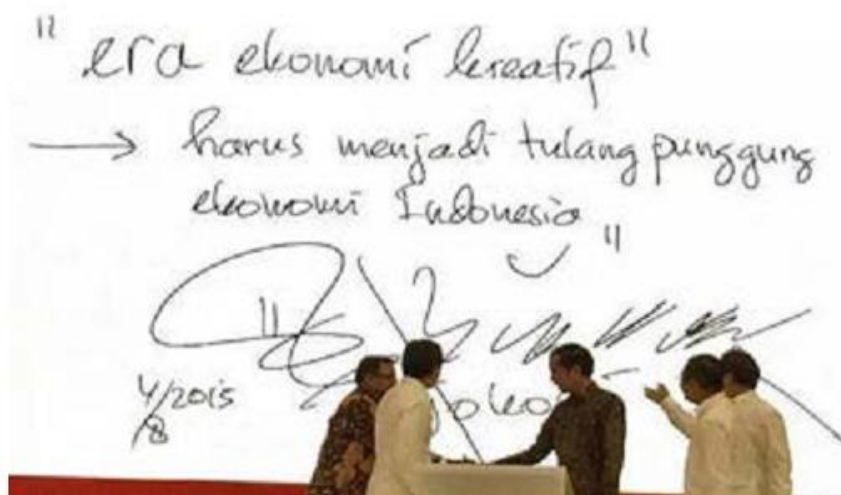 "era ekonomi kreatif"
→ harus menjadi tulang punggung
ekonomi Indonesia"
4/2015
/8